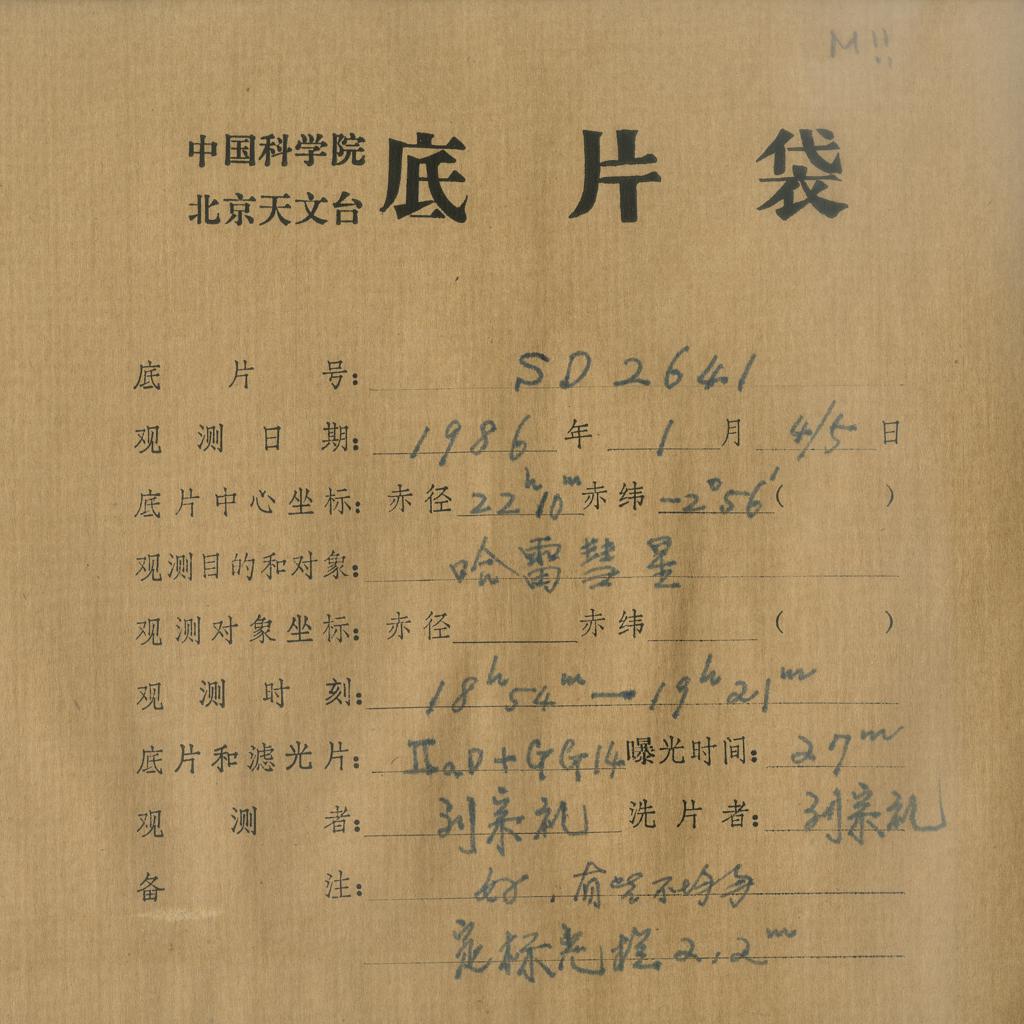 M!!
中国科学院
北京天文台
底片袋
底片号: SD 2641
观测日期: 1986年1月4/5日
底片中心坐标: 赤径 22h10m 赤纬 -2°56′( )
观测目的和对象: 哈雷彗星
观测对象坐标: 赤径 赤纬 ( )
观测时刻: 18h54m—19h21m
底片和滤光片: IIaD+GG14 曝光时间: 27m
观测者: 刘宗礼 洗片者: 刘宗礼
备注: 好,有些不均匀
定标光楔 2,2m